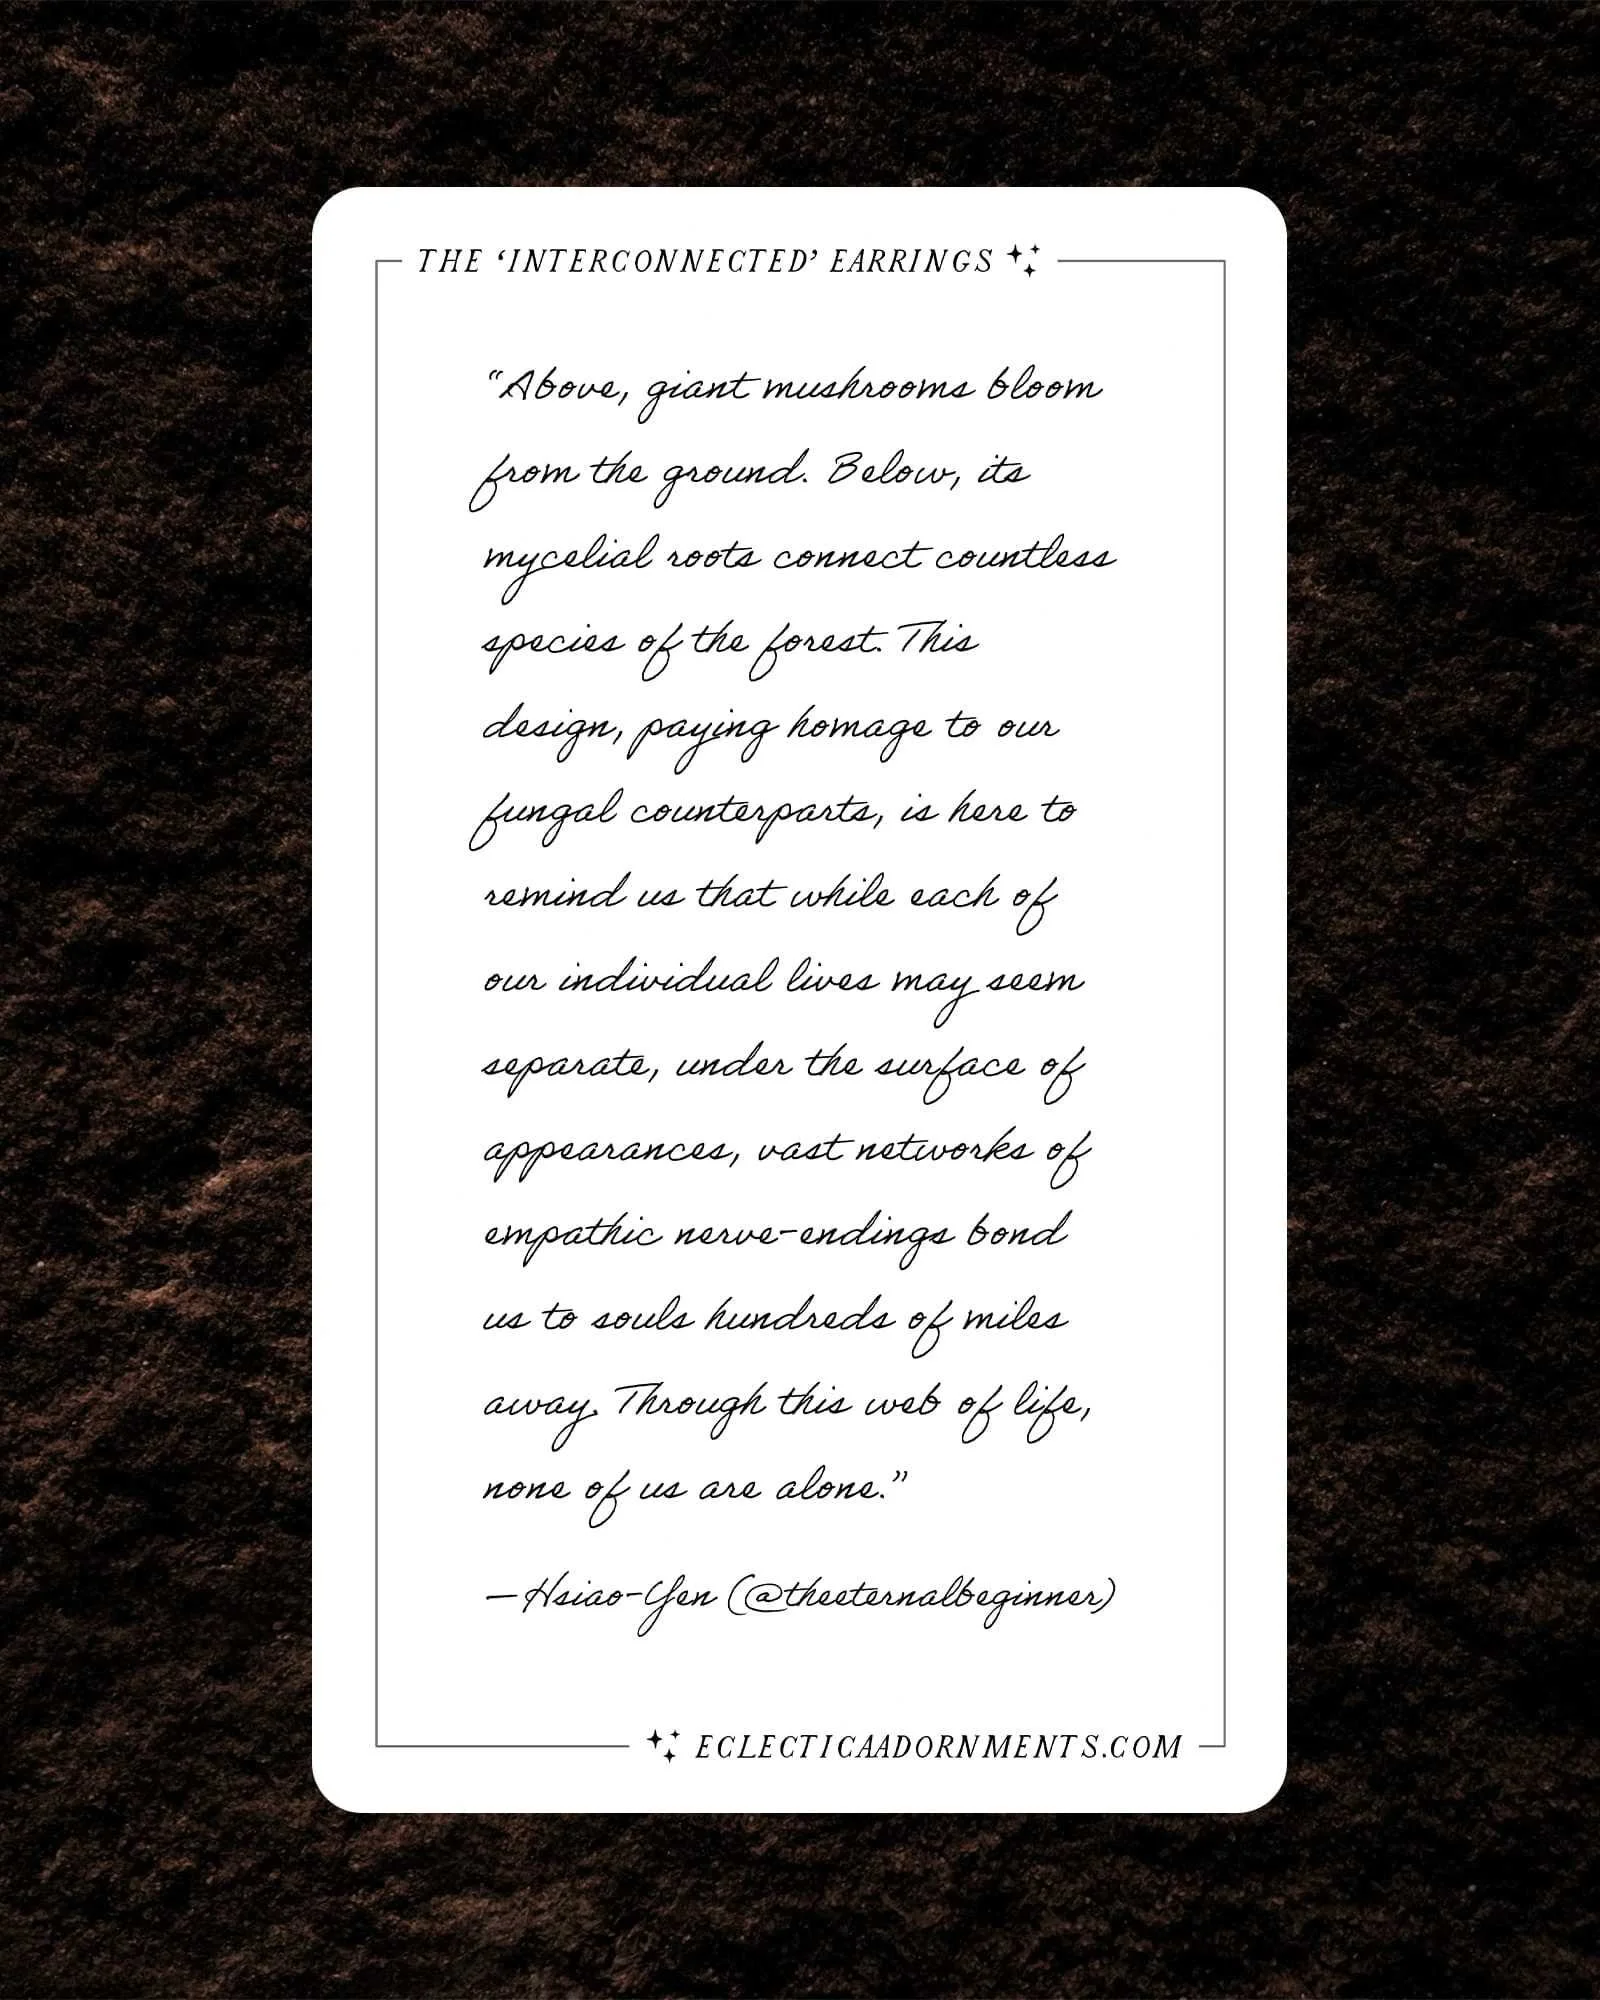 THE ‘INTERCONNECTED’ EARRINGS
“Above, giant mushrooms bloom
from the ground. Below, its
mycelial roots connect countless
species of the forest. This
design, paying homage to our
fungal counterparts, is here to
remind us that while each of
our individual lives may seem
separate, under the surface of
appearances, vast networks of
empathic nerve-endings bond
us to souls hundreds of miles
away. Through this web of life,
none of us are alone.”
—Hsiao-Yen (@theeternalbeginner)
ECLECTICAADORNMENTS.COM